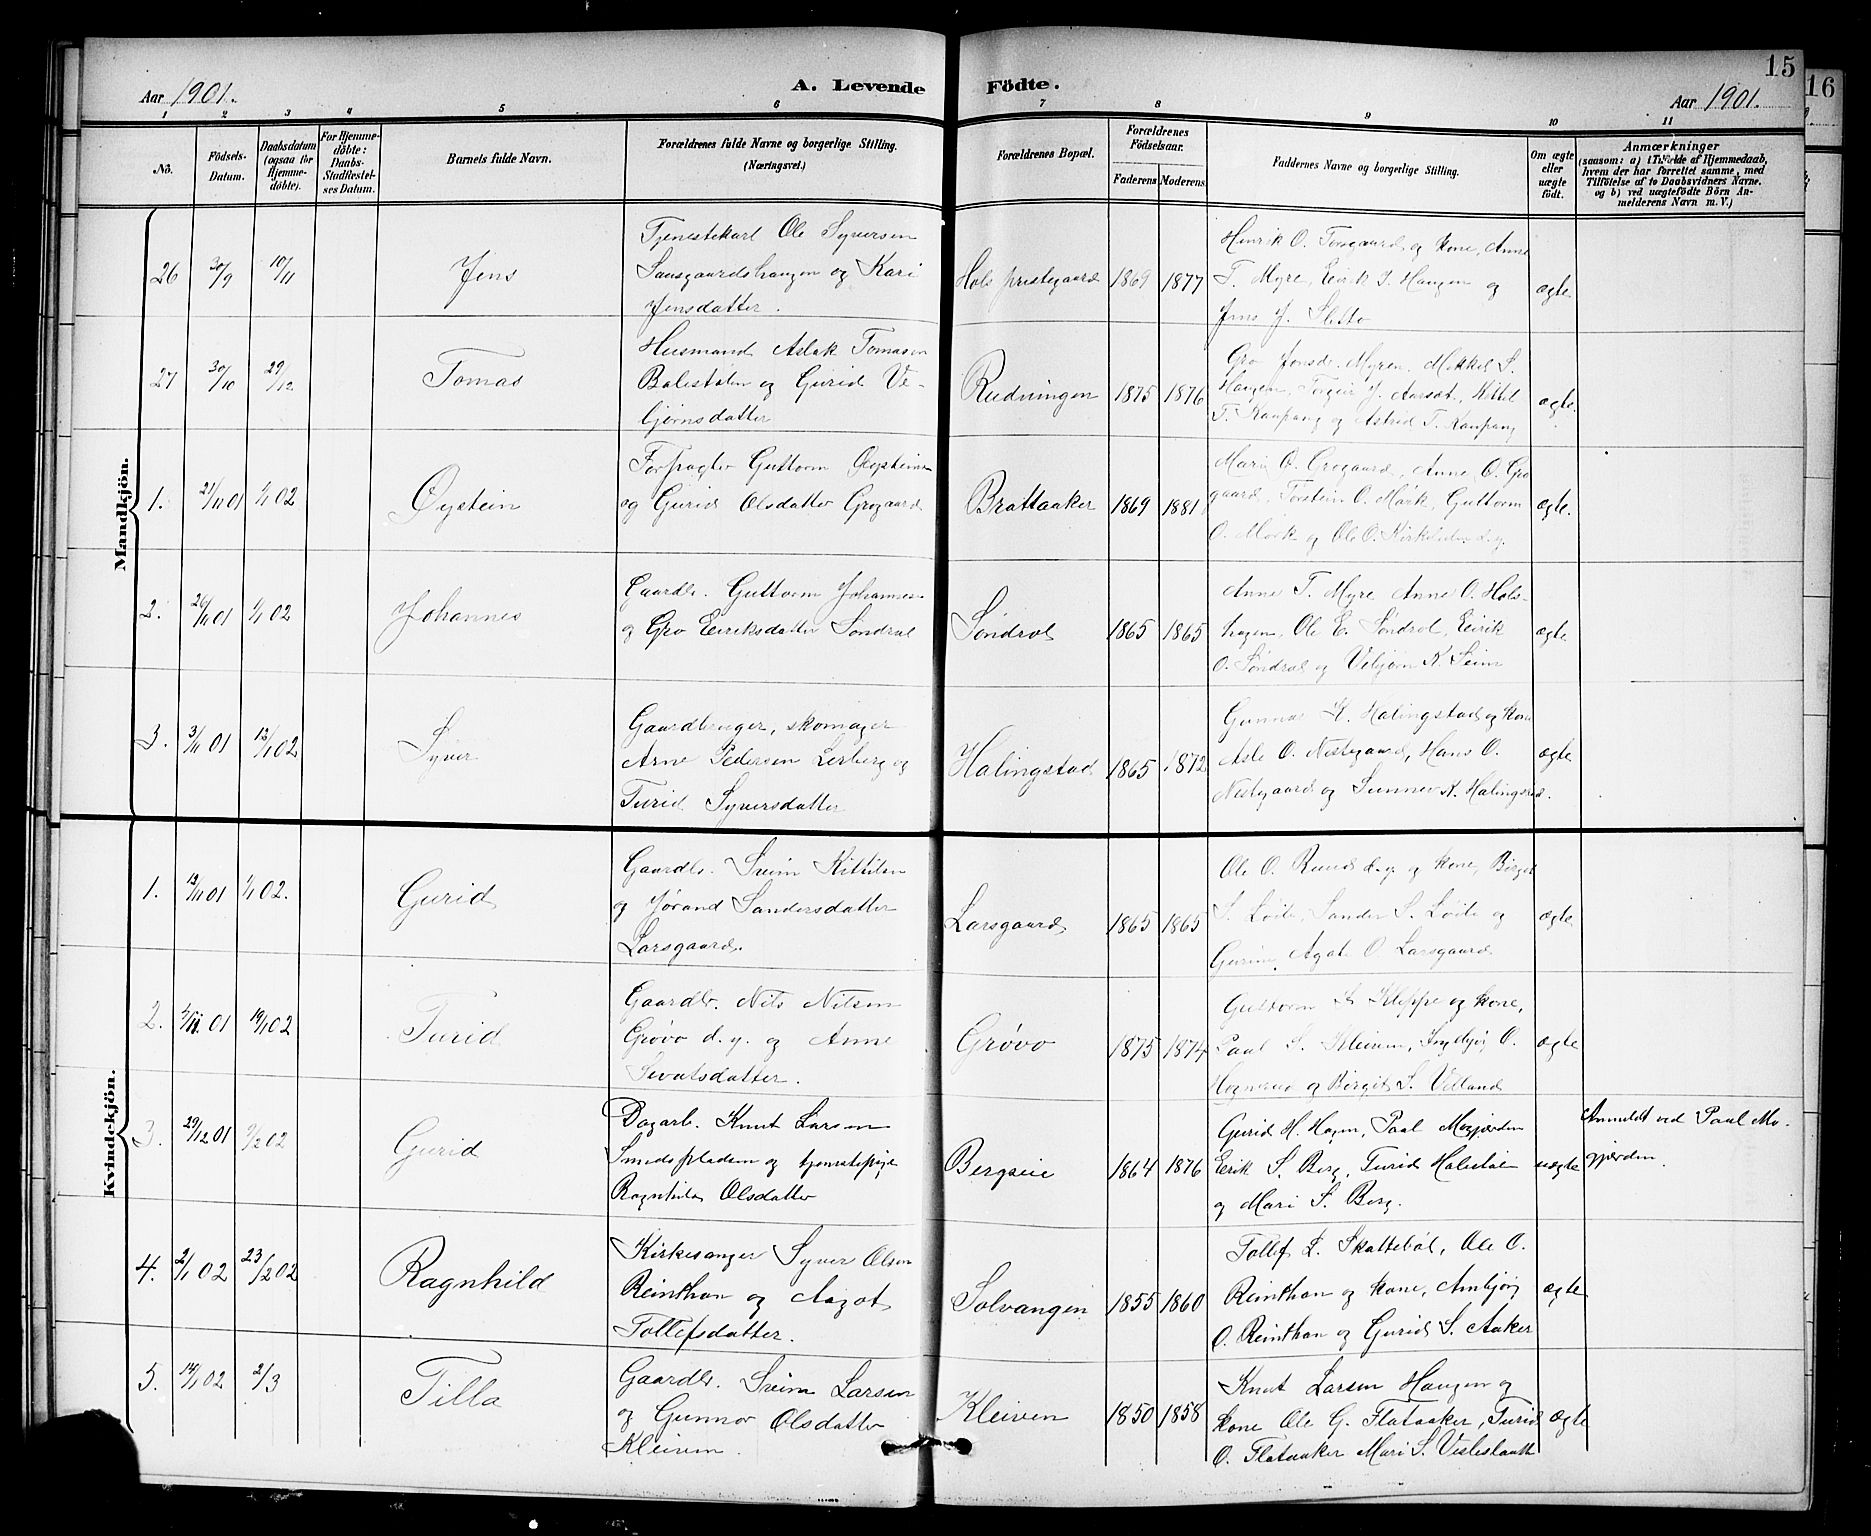 15
16
Aar 1901.
A. Levende Födte.
Aar 1901.
1 2 3 4 5 6 7 8 9 10 11
No.
Födsels-Datum.
Daabsdatum (ogsaa for Hjemmedöbte).
For Hjemmedöbte: Daabs-Stadfæstelses Datum.
Barnets fulde Navn.
Forældrenes fulde Navne og borgerlige Stilling.
(Næringsvei.)
Forældrenes Bopæl.
Forældrenes Födselsaar.
Faderens Moderens
Faddernes Navne og borgerlige Stilling.
Om ægte eller uægte födt.
Anmærkninger
(saasom: a) i Tilfælde af Hjemmedaab,
hvem der har forrettet samme, med
Tilföielse af to Daabsvidners Navne.
og b) ved uægtefödte Börn An-
melderens Navn m. V.)
Mandkjön.
26 30/9 10/11 Jens
Tjenestekarl Ole Syversen
Sausgaardshaugen og Kari
Jensdatter.
Hols prestegaard 1869 1877
Henrik O. Torsgaard og kone, Anne
T. Myre, Eirik T. Haugen og
Jens J. Sletto
ægte
27 30/10 29/12 Tomas
Husmand Aslak Tomasen
Balestolen og Gurid Ve-
bjørnsdatter
Rudningen 1875 1876
Gro Jonsd. Myren, Mikkel S.
Haugen, Torgeir J. Aarset, Kittel
T. Kaupang og Astrid T. Kaupang
ægte.
1. 21/11 01 1/1 02 Øystein
Forpagter Guttorm Øysteins.
og Gurid Olsdatter Grøgaard
Brattaaker 1869 1881
Mari O. Grøgaard, Anne O. Grø
gaard, Torstein O. Mørk, Guttorm
O. Mørk og Ole O. Kirkelien d. y.
ægte.
2. 26/11 01 1/1 02 Johannes
Gaardbr. Guttorm Johannes.
og Gro Eiriksdatter Søndrol
Søndrol 1865 1865
Anne T. Myre, Anne O. Hols-
hagen, Ole E. Søndrol, Eirik
O. Søndrol og Vebjørn K. Seim
ægte
3. 3/11 01 12/1 02 Syver
Gaardbruger, skomager
Arne Pedersen Lerberg og
Turid Syversdatter
Halingstad 1865 1872
Gunnar K. Halingstad og kone
Asle O. Nestegaard, Hans O.
Nestegaard og Sunnev K. Halingstad.
ægte
Kvindekjön.
1. 12/11 01 1/1 02. Gurid
Gaardbr. Svein Kittilsen
og Jørand Sandersdatter
Larsgaard.
Larsgaard 1865 1865
Ole O. Ruud d. y. og kone, Birgit
S. Løite, Sander S. Løite og
Agate O. Larsgaard
ægte
2. 01 19/1 02 Turid
Gaardbr. Nils Nilsen
Grøvo d. y. og Anne
Sevatsdatter.
Grøvo 1875 1874
Guttorm Kleppe og kone,
Paul S. Kleiven, Ingebjør O.
og Birgit S. Villand
ægte
3. 29/12 01 9/2 02 Gurid
Dagarb. Knut Larsen
Smedspladsen og tjenestepige
Ragnhild Olsdatter
Bergseie 1864 1876
Gurid H. Hagen, Paal Mogjerden
Eirik S. Berg, Turid Halestølen
og Mari S. Berg.
uægte
Anmeldt ved Paal Mo-
gjerden.
4. 2/1 02 23/2 02 Ragnhild
Kirkesanger Syver Olsen
Reinthon og Aagot
Tollefsdatter.
Solvangen 1855 1860
Tollef L. Skattebøl, Ole O.
Reinthon og kone, Ambjør
O. Reinthon og Gurid S. Aaker
ægte
5. 14/1 02 2/3 Tilla
Gaardbr. Svein Larsen
og Gunnor Olsdatter
Kleiven.
Kleiven 1850 1858
Knut Larsen Haugen og
kone Ole G. Flataaker, Turid
O. Flataaker Mari S. Vesleslaatt
ægte